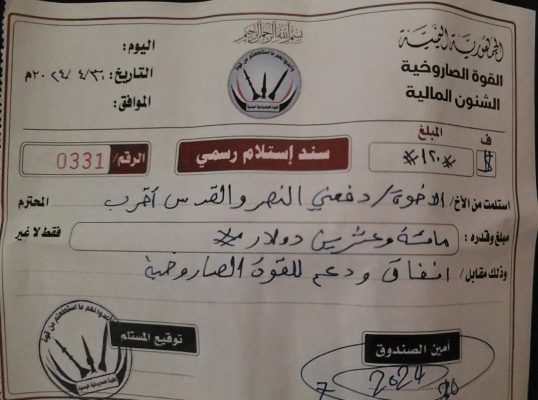 بسم الله الرحمن الرحيم
الجمهورية اليمنية
القوة الصاروخية
الشئون المالية
اليوم:
التاريخ: ٣٠/٤/٢٠٢٤م
الموافق:
وأعدوا لهم ما استطعتم من قوة
القوة الصاروخية اليمنية
المبلغ
ف
$
#١٢٠#
سند إستلام رسمي
الرقم/ 0331
استلمت من الأخ/ الاخوة/ دفعتي النصر والقدس أقرب المحترم
مبلغ وقدره: مائة وعشرين دولار # فقط لا غير
وذلك مقابل/ انفاق ودعم للقوة الصاروخية
توقيع المستلم
أمين الصندوق
وأعدوا لهم ما استطعتم من قوة
القوة الصاروخية اليمنية
2024